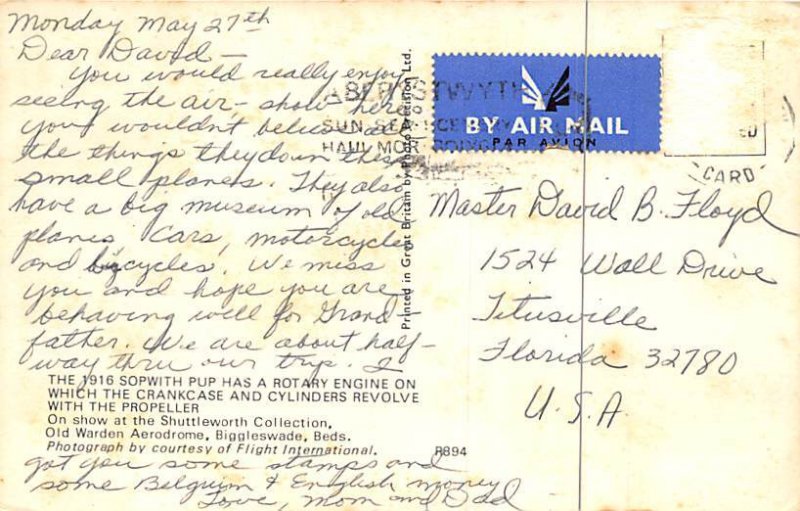 Monday May 27th
Dear David —
You would really enjoy
seeing the air-show here
you wouldn't believe all
the things they do in these
small planes. They also
have a big museum of old
planes, cars, motorcycles
and bicycles. We miss
you and hope you are
behaving well for Grand-
father. We are about half-
way thru our trip. I
THE 1916 SOPWITH PUP HAS A ROTARY ENGINE ON
WHICH THE CRANKCASE AND CYLINDERS REVOLVE
WITH THE PROPELLER
On show at the Shuttleworth Collection,
Old Warden Aerodrome, Biggleswade, Beds.
Photograph by courtesy of Flight International.
R894
got you some stamps and
some Belguim & English money
Love, Mom and Dad
Printed in Great Britain by Photo Precision Ltd.
ABERYSTWYTH
SUN SEA
HAUL MOR
BY AIR MAIL
PAR AVION
CARD
Master David B. Floyd
1524 Wall Drive
Titusville
Florida 32780
U.S.A